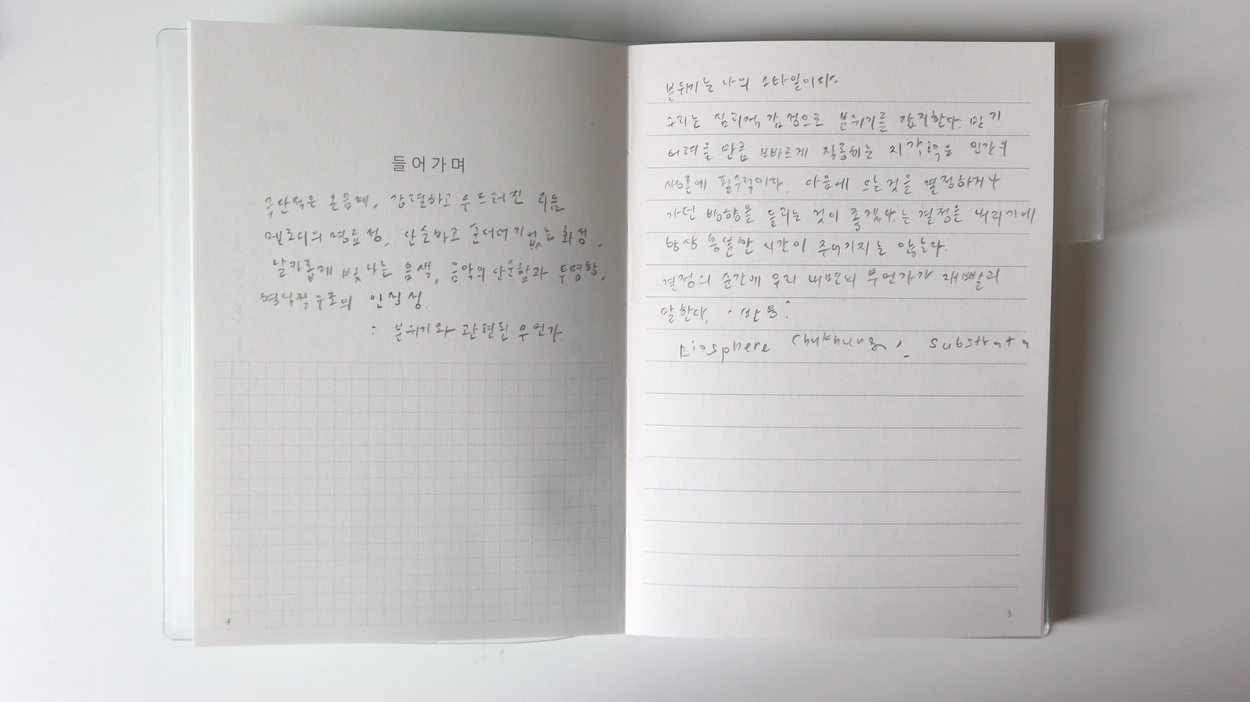 들어가며
극단적은 온음계, 강렬하고 두드러진 리듬
멜로디의 명료성, 단순하고 군더더기없는 화성,
날카롭게 빛나는 음색, 음악의 단순함과 투명함,
형식적 구조의 안정성.
: 분위기와 관련된 무언가.
4
분위기는 나의 스타일이다.
우리는 심리적 감정으로 분위기를 감지한다. 믿기
어려울 만큼 재빠르게 작동하는 지각력은 인간의
생존에 필수적이다. 마음에 드는 것을 결정하거나
가던 방향을 돌리는 것이 좋겠다는 결정을 내리기에
항상 충분한 시간이 주어지지는 않는다.
결정의 순간에 우리 내면의 무언가가 재빨리
말한다.
Biosphere Substrata
5